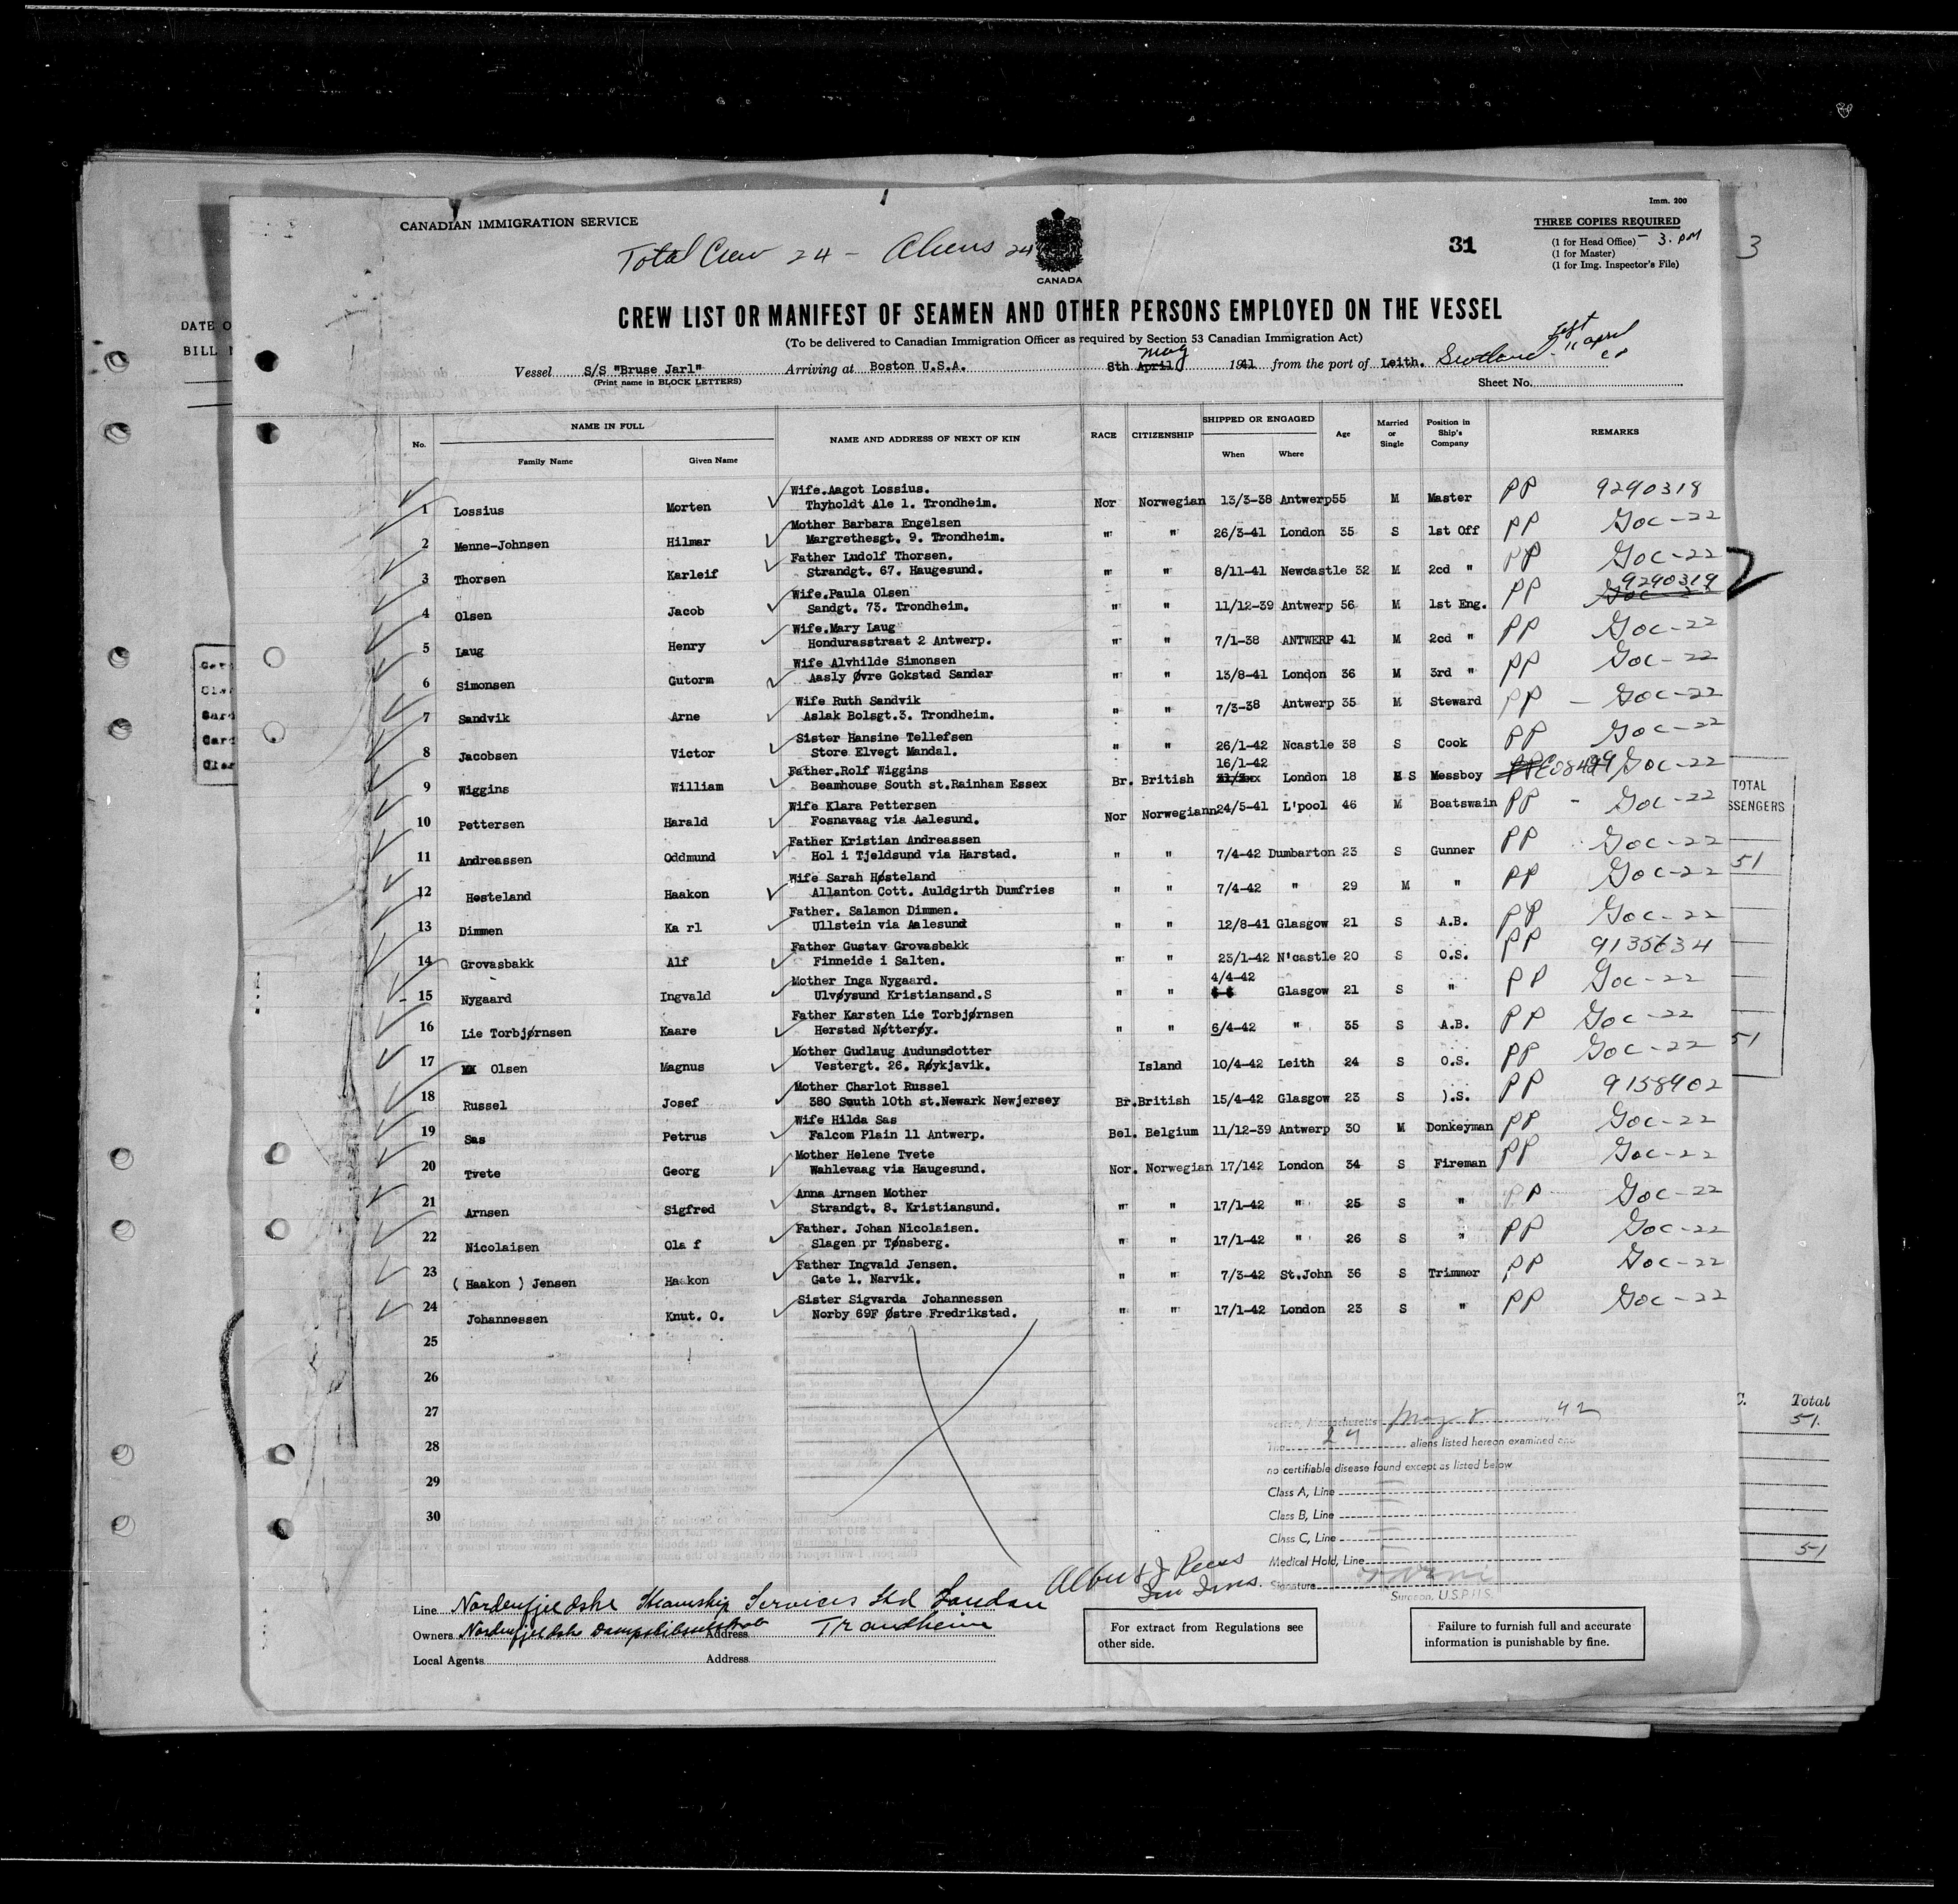 Imm. 200
CANADIAN IMMIGRATION SERVICE
THREE COPIES REQUIRED
Total Crew 24 - Aliens 24
31
(1 for Head Office) - 3. PM
3
(1 for Master)
(1 for Img. Inspector's File)
CANADA
CREW LIST OR MANIFEST OF SEAMEN AND OTHER PERSONS EMPLOYED ON THE VESSEL
(To be delivered to Canadian Immigration Officer as required by Section 53 Canadian Immigration Act)
DATE O
BILL
left
11 april
May
Vessel S/S "Bruse Jarl" Arriving at Boston U.S.A. 8th April 1941 from the port of Leith. Scotland
(Print name in BLOCK LETTERS)
Sheet No.
No. NAME IN FULL Family Name Given Name NAME AND ADDRESS OF NEXT OF KIN RACE CITIZENSHIP SHIPPED OR ENGAGED When Where Age Married or Single Position in Ship's Company REMARKS
Wife.Aagot Lossius.
1 Lossius Morten Thyholdt Ale 1. Trondheim. Nor Norwegian 13/3-38 Antwerp 55 M Master PP 9290318
Mother Barbara Engelsen
2 Menne-Johnsen Hilmar Margrethesgt. 9. Trondheim. " " 26/3-41 London 35 S 1st Off PP Goc-22
Father Ludolf Thorsen.
3 Thorsen Karleif Strandgt. 67. Haugesund. " " 8/11-41 Newcastle 32 M 2cd " PP Goc-22
Wife.Paula Olsen 9290319
4 Olsen Jacob Sandgt. 73. Trondheim. " " 11/12-39 Antwerp 56 M 1st Eng. PP Goc-22
Wife.Mary Laug
5 Laug Henry Hondurasstraat 2 Antwerp. " " 7/1-38 ANTWERP 41 M 2cd " PP Goc-22
Wife Alvhilde Simonsen
6 Simonsen Gutorm Aasly Øvre Gokstad Sandar " " 13/8-41 London 36 M 3rd " PP Goc-22
Wife Ruth Sandvik
7 Sandvik Arne Aslak Bolsgt.3. Trondheim. " " 7/3-38 Antwerp 35 M Steward PP - Goc-22
Sister Hansine Tellefsen
8 Jacobsen Victor Store Elvegt Mandal. " " 26/1-42 Ncastle 38 S Cook PP Goc-22
Father.Rolf Wiggins 16/1-42
9 Wiggins William Beamhouse South st.Rainham Essex Br. British London 18 S Messboy Goc-22
Wife Klara Pettersen
10 Pettersen Harald Fosnavaag via Aalesund. Nor Norwegiann 24/5-41 L'pool 46 M Boatswain PP - Goc-22
Father Kristian Andreassen
11 Andreassen Oddmund Hol i Tjeldsund via Harstad. " " 7/4-42 Dumbarton 23 S Gunner PP Goc-22
Wife Sarah Høsteland
12 Hosteland Haakon Allanton Cott. Auldgirth Dumfries " " 7/4-42 " 29 M " PP Goc-22
Father. Salamon Dimmen.
13 Dimmen Ka rl Ullstein via Aalesund " " 12/8-41 Glasgow 21 S A.B. PP Goc-22
Father Gustav Grovasbakk
14 Grovasbakk Alf Finneide i Salten. " " 23/1-42 N'castle 20 S O.S. PP 9135634
Mother Inga Nygaard. 4/4-42
15 Nygaard Ingvald Ulvøysund Kristiansand.S " " Glasgow 21 S " PP Goc-22
Father Karsten Lie Torbjørnsen
16 Lie Torbjørnsen Kaare Herstad Nøtterøy. " " 6/4-42 " 35 S A.B. PP Goc-22
Mother Gudlaug Audunsdotter
17 Olsen Magnus Vestergt. 26. Røykjavik. Island 10/4-42 Leith 24 S O.S. PP Goc-22
Mother Charlot Russel
18 Russel Josef 380 South 10th st.Newark Newjersey Br.British 15/4-42 Glasgow 23 S ).S. PP 9158902
Wife Hilda Sas
19 Sas Petrus Falcom Plain 11 Antwerp. Bel. Belgium 11/12-39 Antwerp 30 M Donkeyman PP Goc-22
Mother Helene Tvete
20 Tvete Georg Wahlevaag via Haugesund. Nor. Norwegian 17/142 London 34 S Fireman PP Goc-22
Anna Arnsen Mother
21 Arnsen Sigfred Strandgt. 8. Kristiansund. " " 17/1-42 " 25 S " PP Goc-22
Father. Johan Nicolaisen.
22 Nicolaisen Ola f Slagen pr Tønsberg. " " 17/1-42 " 26 S " PP Goc-22
Father Ingvald Jensen.
23 ( Haakon ) Jensen Haakon Gate 1. Narvik. " " 7/3-42 St.John 36 S Trimmer PP Goc-22
Sister Sigvarda Johannessen
24 Johannessen Knut. O. Norby 69F Østre Fredrikstad. " " 17/1-42 London 23 S " PP Goc-22
25
26
27
28
29
30
TOTAL
SSENGERS
51
51
Total
51
51
Massachusetts May 8 42
The 24 aliens listed hereon examined and
no certifiable disease found except as listed below
Class A, Line
Class B, Line
Class C, Line
Medical Hold, Line
Signature
Surgeon, U.S.P.H.S.
Line Nordenfjeldske Steamship Services Ltd London
Owners Nordenfjeldske Dampskibsselskab Address Trondheim
Local Agents Address
For extract from Regulations see other side.
Failure to furnish full and accurate information is punishable by fine.